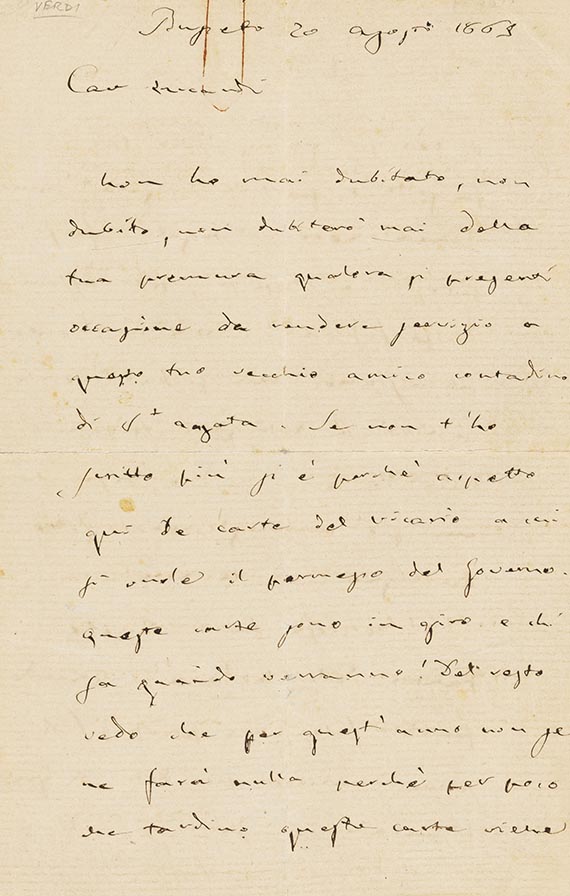 VERDI
Busseto 20 agosto 1863
Car
Non ho mai dubitato, non
dubito, non dubiterò mai della
tua premura qualora si presenti
occasione da rendere servizio a
questo tuo vecchio amico contadino
di St agata. Se non t'ho
scritto più si è perchè aspetto
qui le carte del vicario a cui
si vuole il permesso del Governo.
Queste carte sono in giro e chi
sa quando verranno! Del resto
vedo che per quest'anno non se
ne farà nulla perchè per poco
che tardino queste carte viene